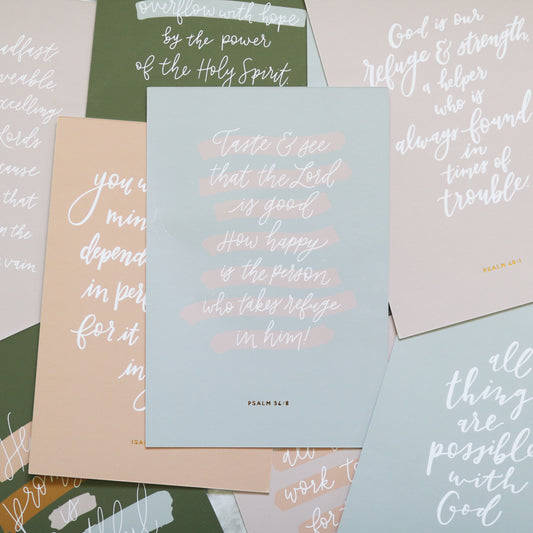 adfast.
veable,
xcelling
Lords
cause
that
in the
vain
overflow with hope
by the power
of the Holy Spirit.
God is our
refuge & strength,
a helper
who is
always found
in
times of
trouble.
PSALM 46:1
you w
min
depend
in per
for it
in
ISA
Taste & see
that the Lord
is good
How happy
is the person
who takes refuge
in him!
PSALM 34:8
all
thing
are
possible
with
God
He
is
all
work to
for